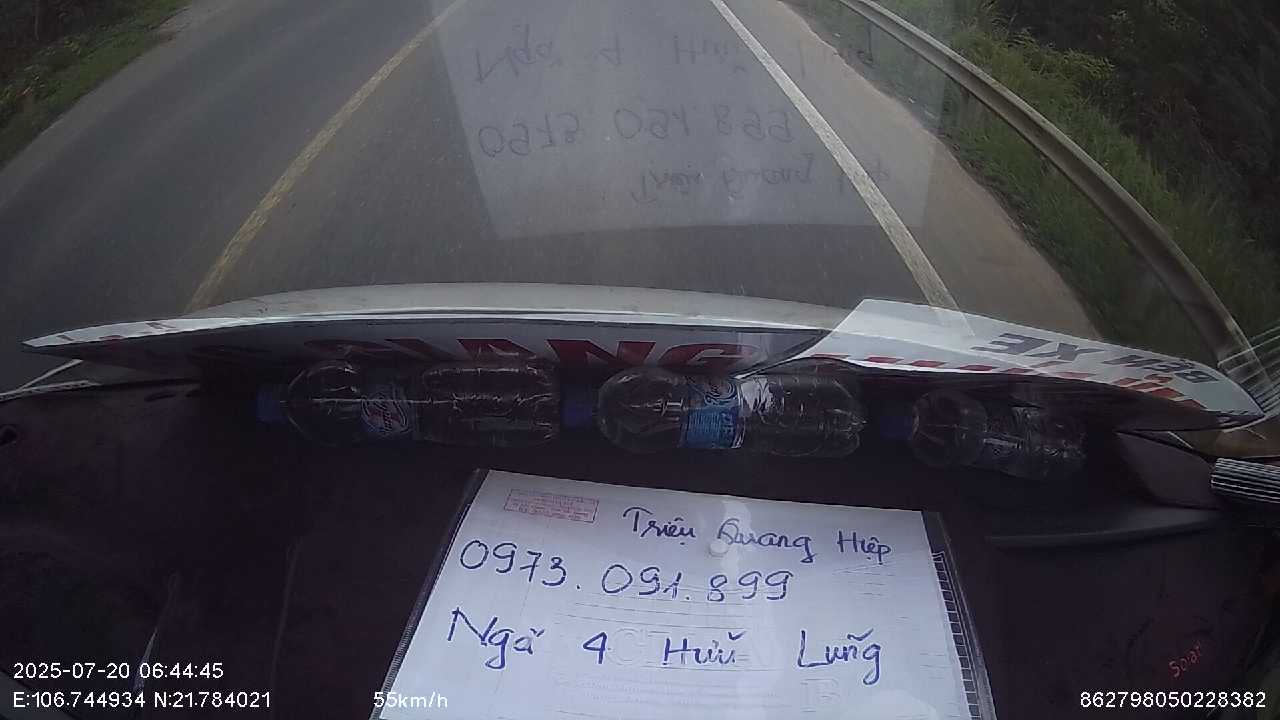 GIANG
BẾN XE
Triệu Quang Hiệp
0973.091.899
Ngã 4 Hữu Lũng
2025-07-20 06:44:45
E:106.744934 N:21.784021
55km/h
862798050228382